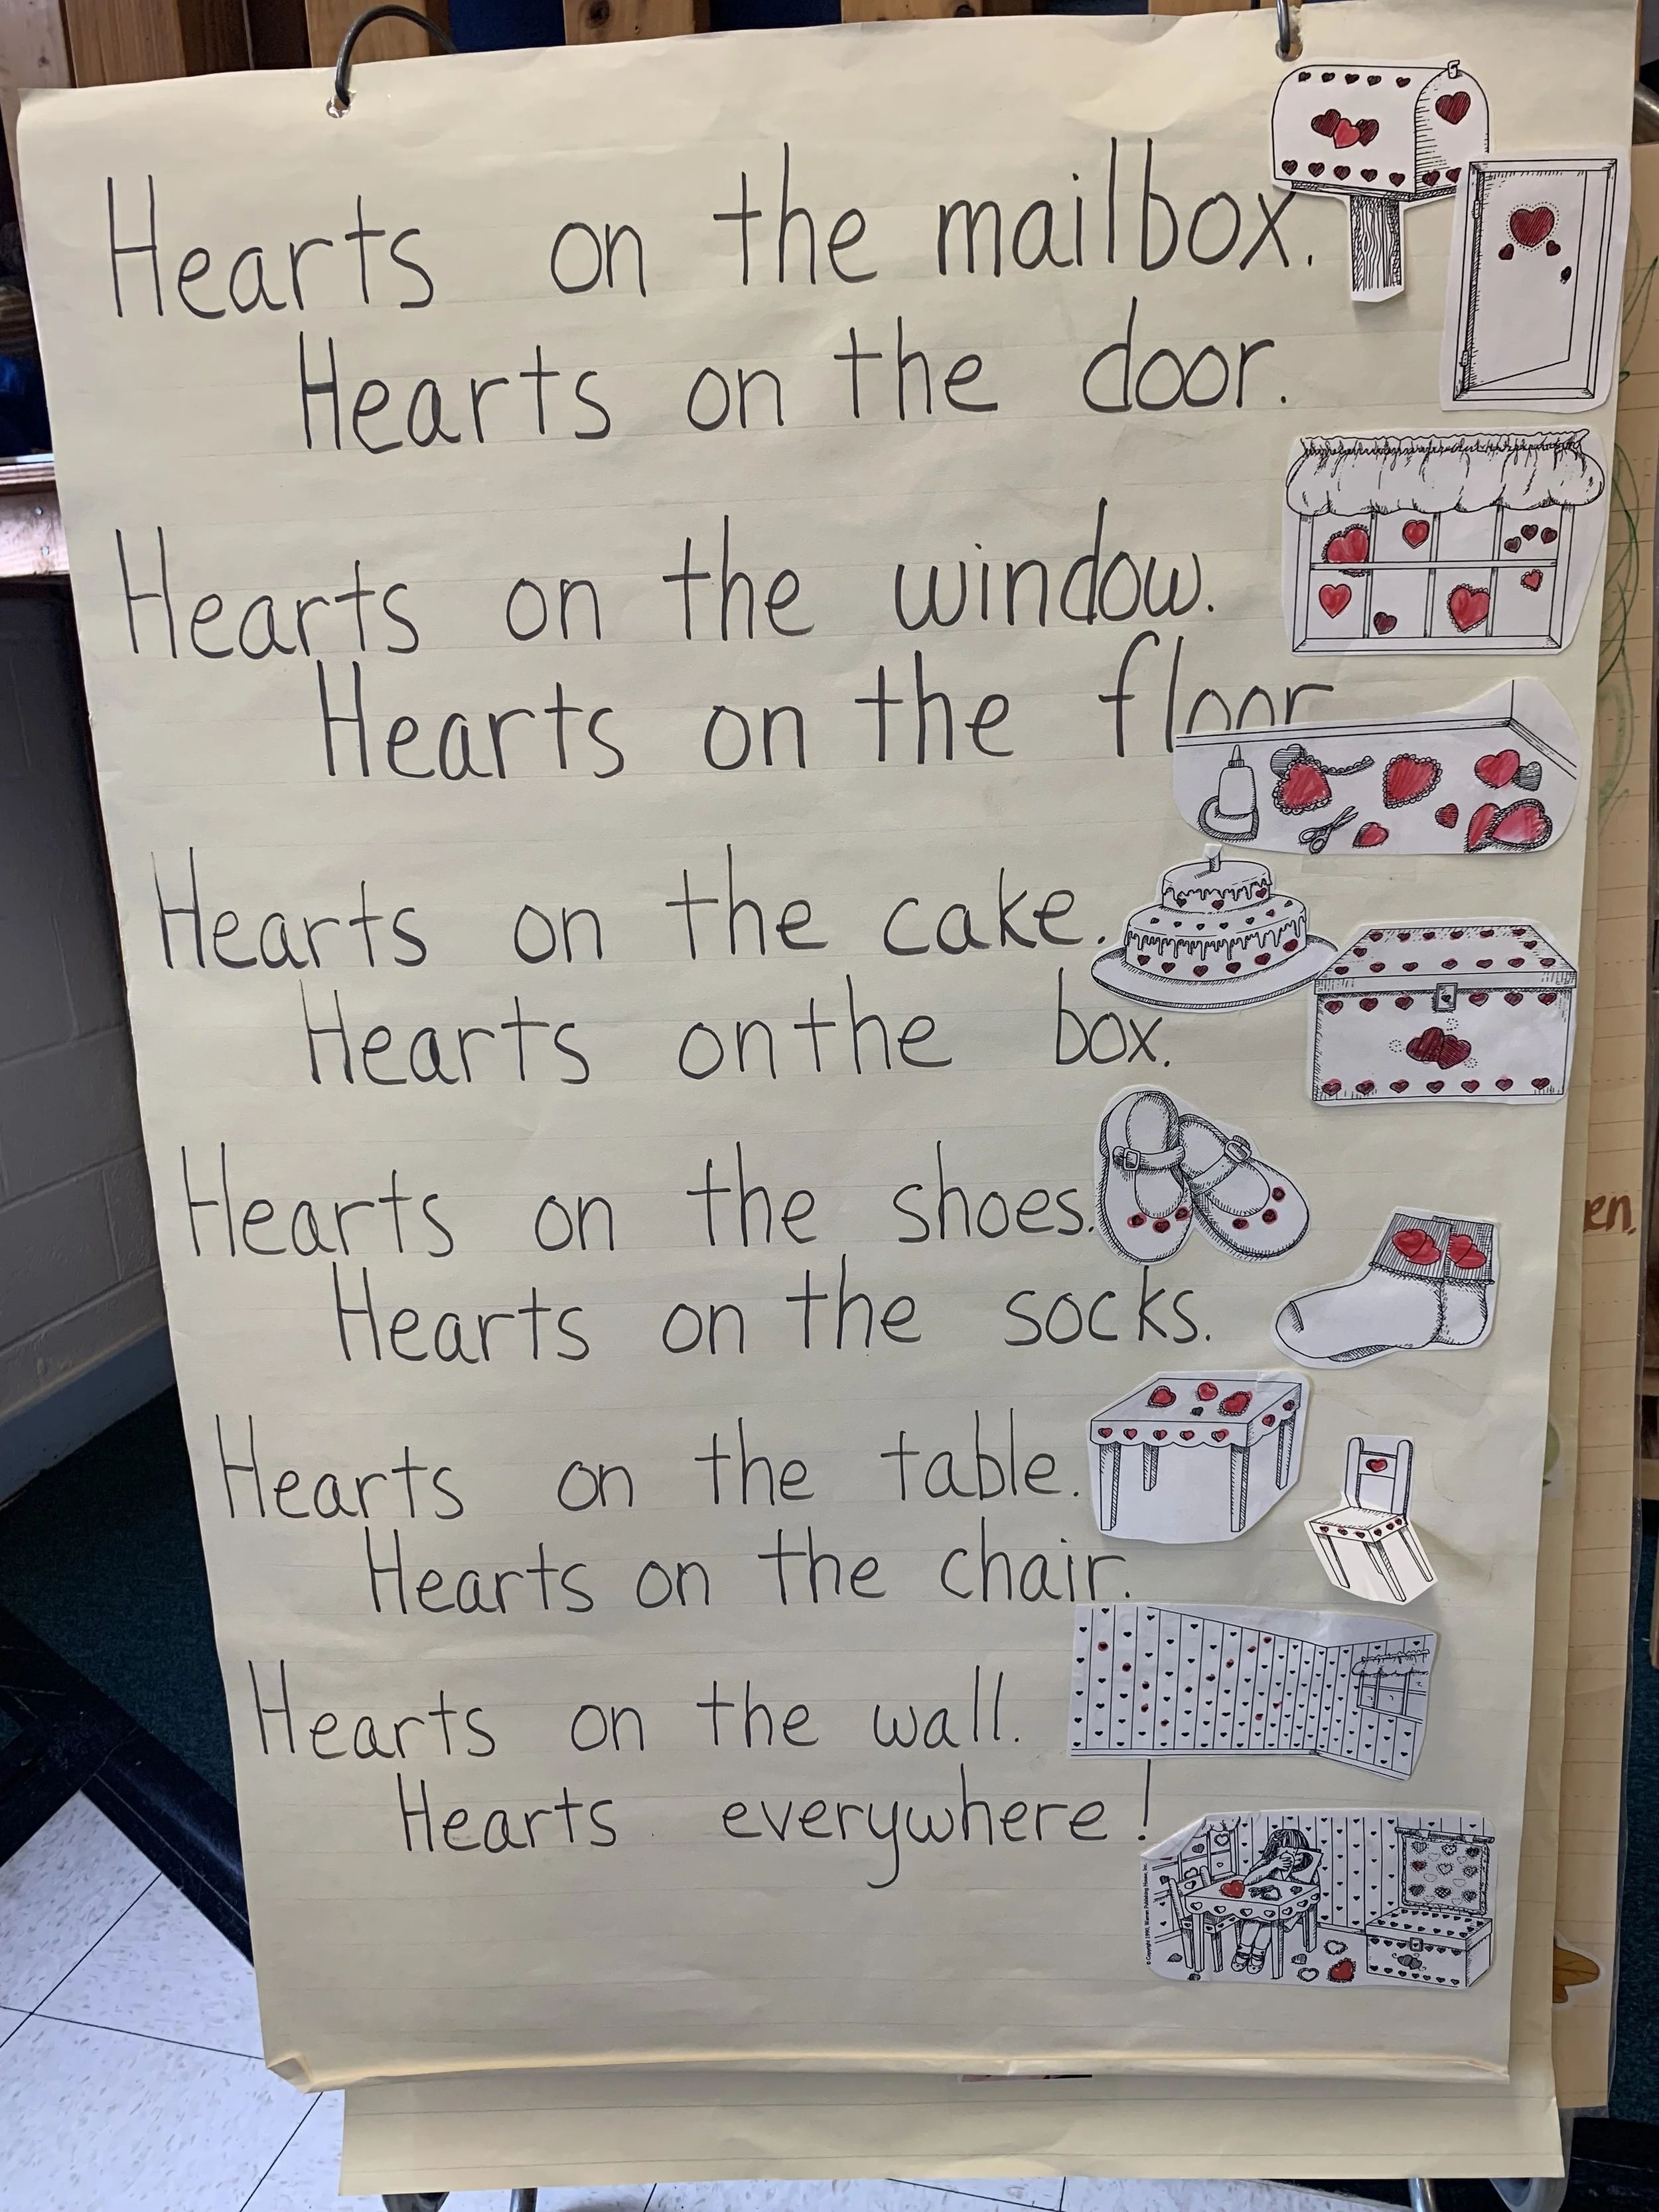 Hearts on the mailbox.
Hearts on the door.
Hearts on the window.
Hearts on the floor
Hearts on the cake.
Hearts on the box.
Hearts on the shoes.
Hearts on the socks.
Hearts on the table.
Hearts on the chair.
Hearts on the wall.
Hearts everywhere!
en.